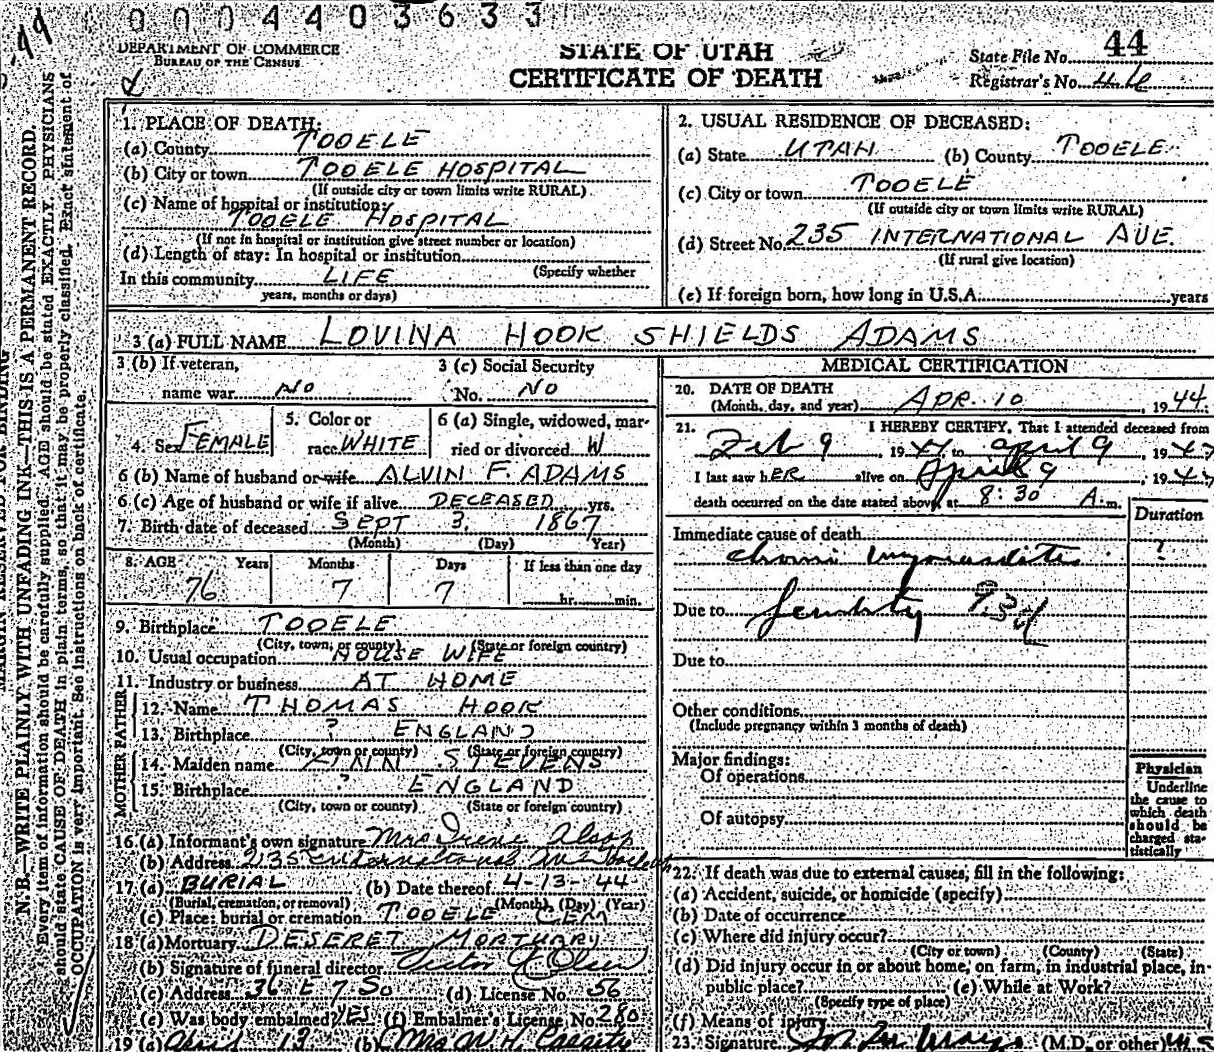 0004403633
DEPARTMENT OF COMMERCE
BUREAU OF THE CENSUS
STATE OF UTAH
CERTIFICATE OF DEATH
State File No. 44
Registrar's No.
N. B.—WRITE PLAINLY WITH UNFADING INK—THIS IS A PERMANENT RECORD.
Every item of information should be carefully supplied. AGE should be stated EXACTLY. PHYSICIANS
should state CAUSE OF DEATH in plain terms, so that it may be properly classified. Exact statement of
OCCUPATION is very important. See instructions on back of certificate.
1. PLACE OF DEATH:
(a) County TOOELE
(b) City or town TOOELE HOSPITAL
(If outside city or town limits write RURAL)
(c) Name of hospital or institution:
TOOELE HOSPITAL
(If not in hospital or institution give street number or location)
(d) Length of stay: In hospital or institution
(Specify whether
In this community LIFE
years, months or days)
2. USUAL RESIDENCE OF DECEASED:
(a) State UTAH (b) County TOOELE
(c) City or town TOOELE
(If outside city or town limits write RURAL)
(d) Street No. 235 INTERNATIONAL AUE.
(If rural give location)
(e) If foreign born, how long in U.S.A. years
3 (a) FULL NAME LOVINA HOOK SHIELDS ADAMS
3 (b) If veteran, 3 (c) Social Security
name war NO No. NO
4. Sex FEMALE 5. Color or race WHITE 6 (a) Single, widowed, married or divorced W
6 (b) Name of husband or wife ALVIN F. ADAMS
6 (c) Age of husband or wife if alive DECEASED yrs.
7. Birth date of deceased SEPT 3, 1867
(Month) (Day) Year)
8. AGE Years Months Days If less than one day
76 7 7 hr. min.
9. Birthplace TOOELE
(City, town, or county) (State or foreign country)
10. Usual occupation HOUSE WIFE
11. Industry or business AT HOME
FATHER
12. Name THOMAS HOOK
13. Birthplace ? ENGLAND
(City, town or county) (State or foreign country)
MOTHER
14. Maiden name ANN STEVENS
15. Birthplace ? ENGLAND
(City, town or county) (State or foreign country)
16. (a) Informant's own signature Mrs Irene Alsop
(b) Address 235 International Ave Tooele
17 (a) BURIAL (b) Date thereof 4-13-44
(Burial, cremation, or removal) (Month) (Day) (Year)
(c) Place: burial or cremation TOOELE CEM
18 (a) Mortuary DESERET MORTUARY
(b) Signature of funeral director Victor Olsen
(c) Address 36 E 7 SO (d) License No. 56
(e) Was body embalmed? YES (f) Embalmer's License No. 280
19 (a) April 13 (b) Mrs W. H. Cassity
MEDICAL CERTIFICATION
20. DATE OF DEATH
(Month, day, and year) APR. 10, 1944.
21. I HEREBY CERTIFY, That I attended deceased from
Feb 9 1944 to April 9, 1944
I last saw hER alive on April 9, 1944
death occurred on the date stated above, at 8:30 A. m.
Duration
Immediate cause of death
chronic myocarditis ?
Due to
Due to
Other conditions
(Include pregnancy within 3 months of death)
Major findings:
Of operations
Of autopsy
Physician
Underline
the cause to
which death
should be
charged sta-
tistically
22. If death was due to external causes, fill in the following:
(a) Accident, suicide, or homicide (specify)
(b) Date of occurrence
(c) Where did injury occur?
(City or town) (County) (State)
(d) Did injury occur in or about home, on farm, in industrial place, in-
public place? (e) While at Work?
(Specify type of place)
(f) Means of injury
23. Signature (M.D. or other)